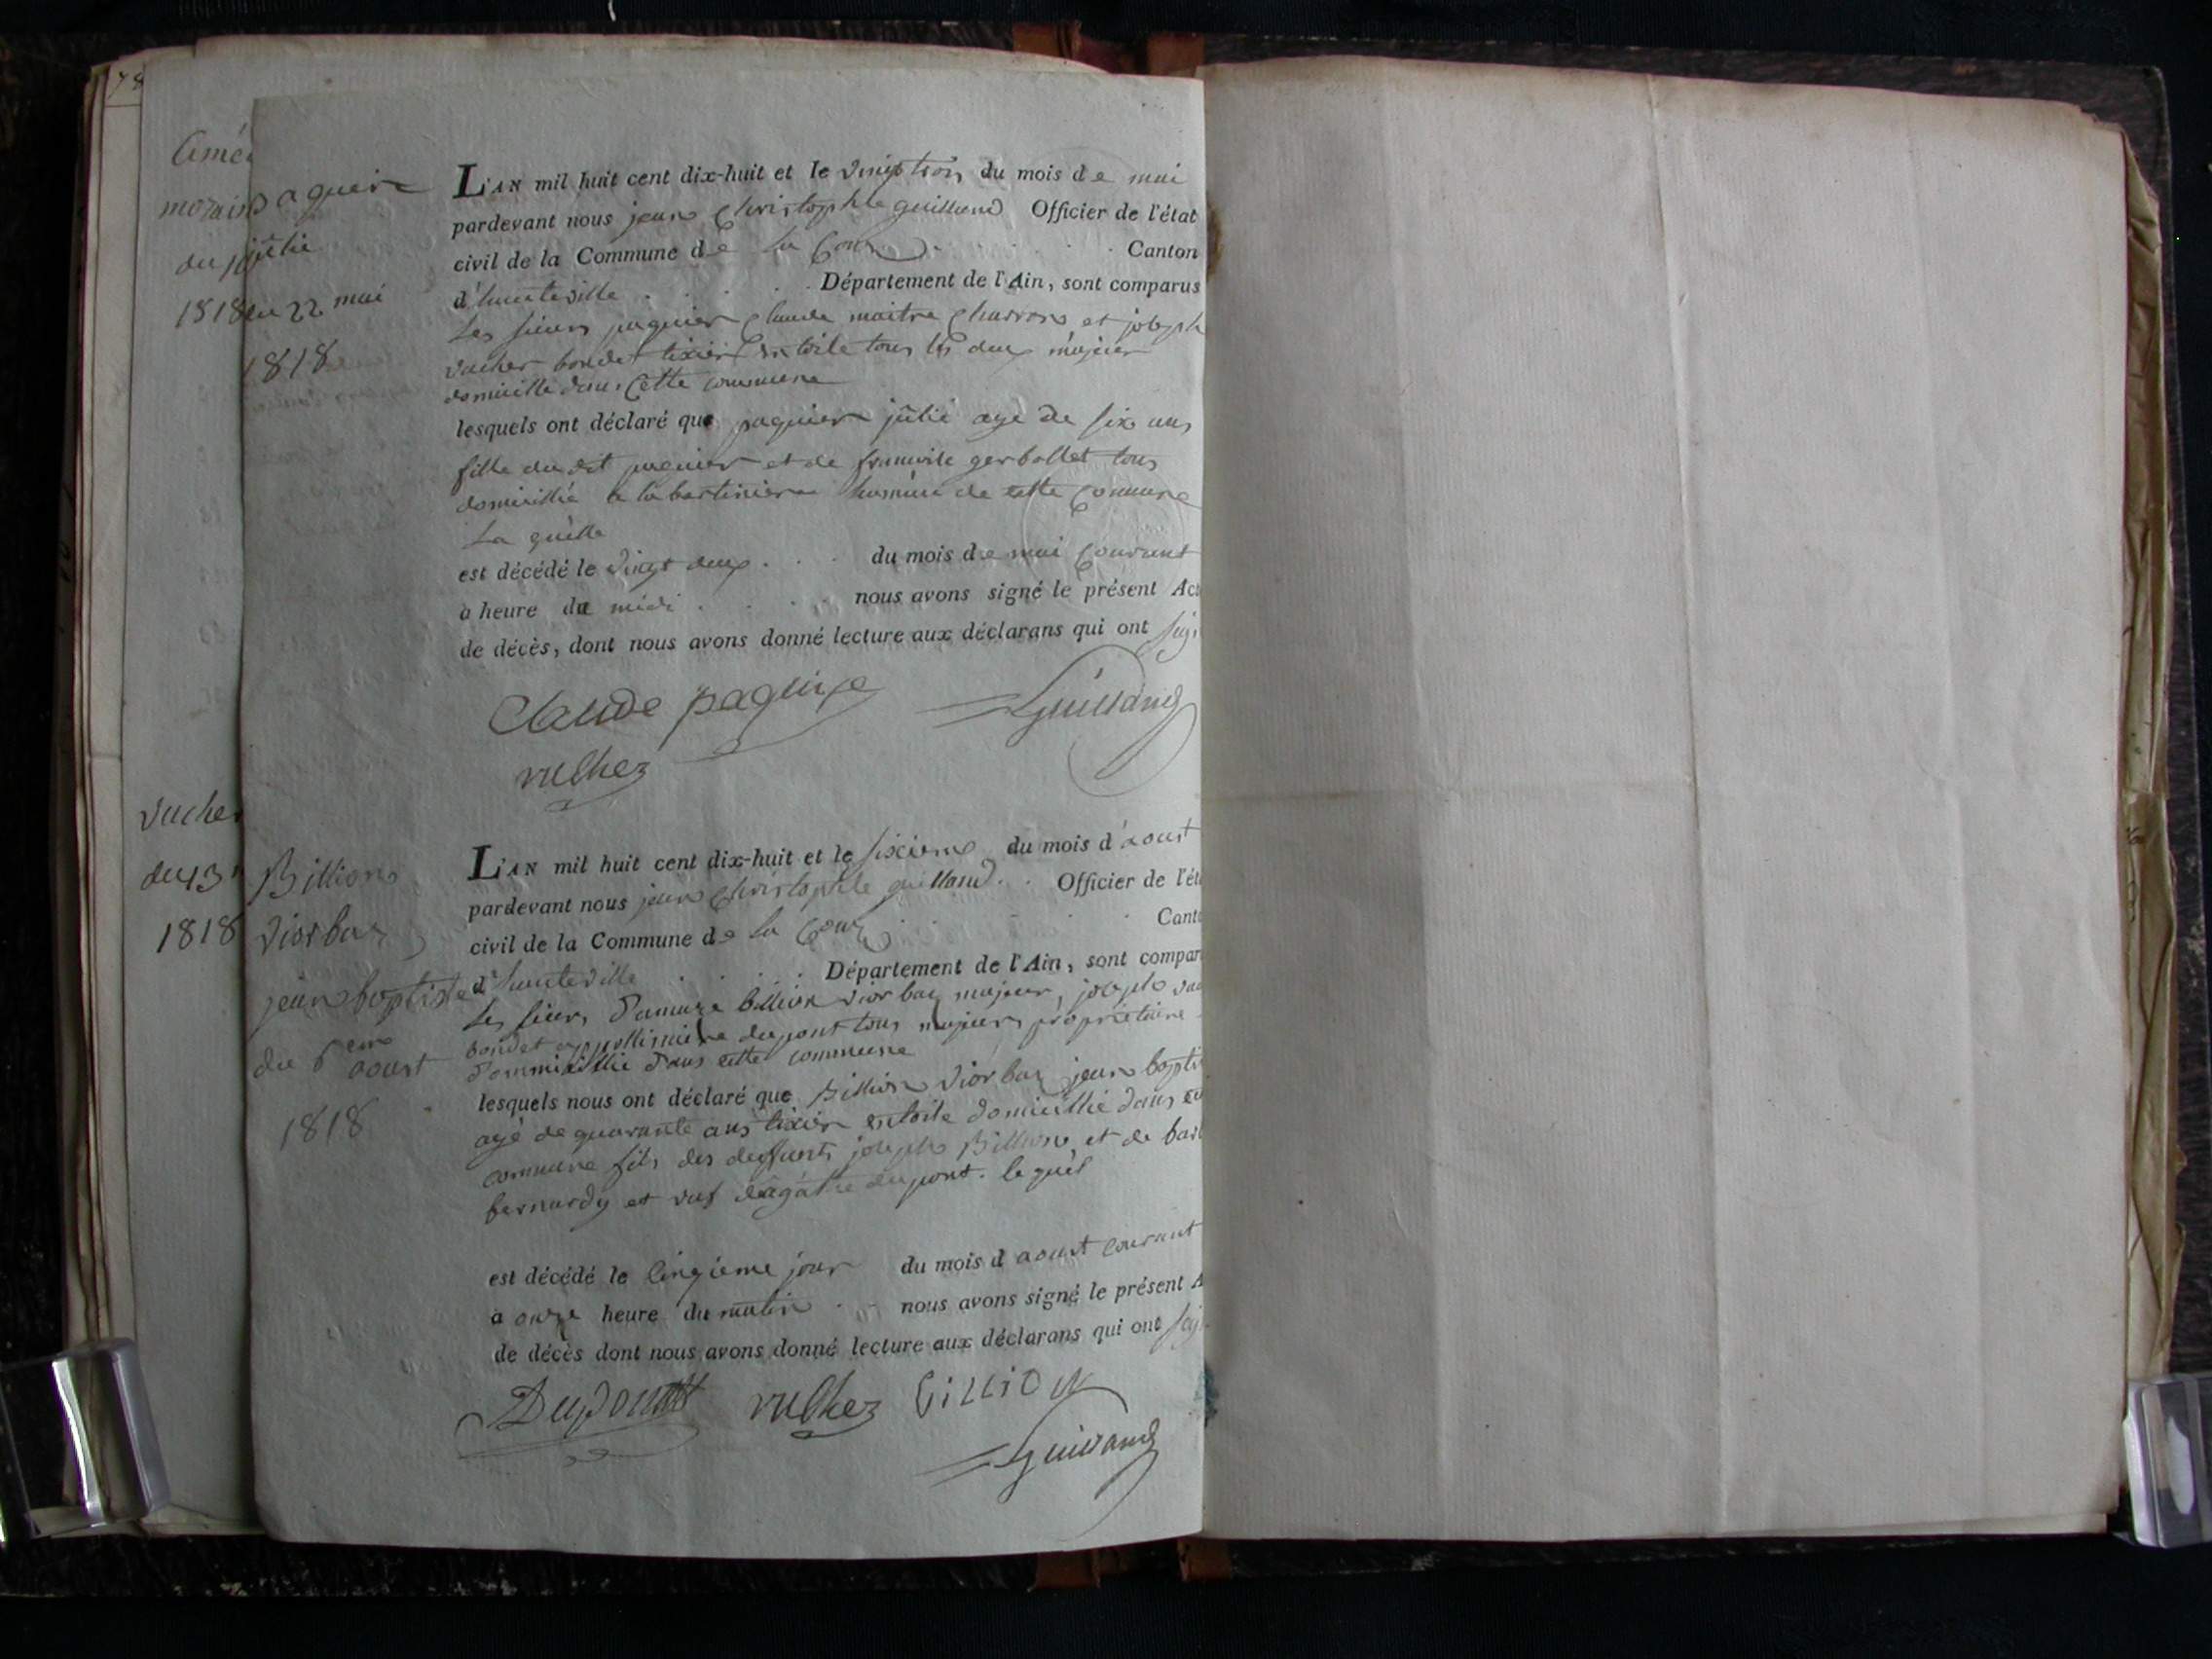 78
Amé
morain
du j
1818
paquier
jûlie
du 22 mai
1818
L'AN mil huit cent dix-huit et le vingt trois du mois de mai
pardevant nous jean Christophle guilland Officier de l'état
civil de la Commune de la Coux Canton
d'hauteville Département de l'Ain, sont comparus
Les sieurs paquier Claude maitre Charron et joseph
vucher bondet tixier en toile tous les deux majeur
domicille dans Cette commune
lesquels ont déclaré que paquier jûlie agé de six ans
fille du dit paquier et de francoise gerbollet tous
domicillié a la bertiniere hameau de cette Commune
La quelle
est décédé le vingt deux du mois de mai Courant
à heure de midi nous avons signé le présent Act
de décès, dont nous avons donné lecture aux déclarans qui ont sig
Claude paquier Guilland
vuChez
vucher
du 13
1818
Billion
viorbay
jean baptiste
du 6eme aoust
1818
L'AN mil huit cent dix-huit et le sixieme du mois d'aoust
pardevant nous jean Christophle guilland Officier de l'ét
civil de la Commune de la Coux Cant
d'hauteville Département de l'Ain, sont compar
Les sieurs Billion viorbay majeur, joseph vu
bondet dupont tous majeurs propriétaire
dommicillié dans cette commune
lesquels nous ont déclaré que Billion viorbay jean bapti
agé de quarante ans tixier en toile domicillié dans ce
commune fils des deffunts joseph Billion et de bar
bernardy et vuf d'agathe dupont. le quel
est décédé le Cinqieme jour du mois d aoust courant
à onze heure du matin nous avons signé le présent A
de décès dont nous avons donné lecture aux déclarans qui ont sig
Dupont vuChez BiLLiON
Guilland